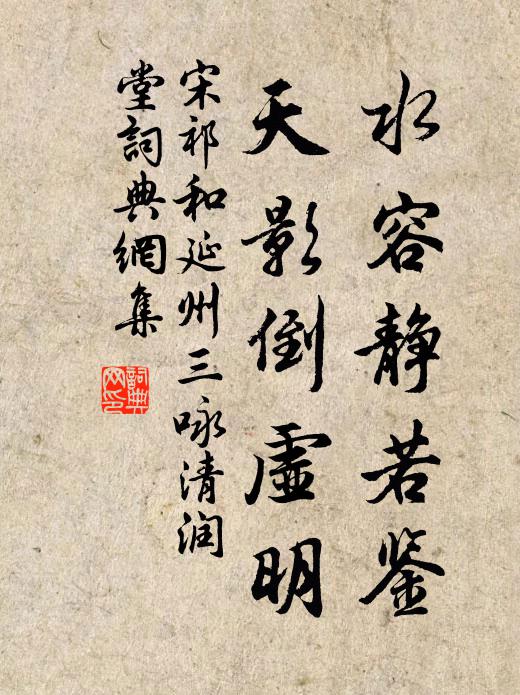 水容静若鉴
天影倒虚明
宋祁和延州三咏清润
堂詞典網集
詞典网印